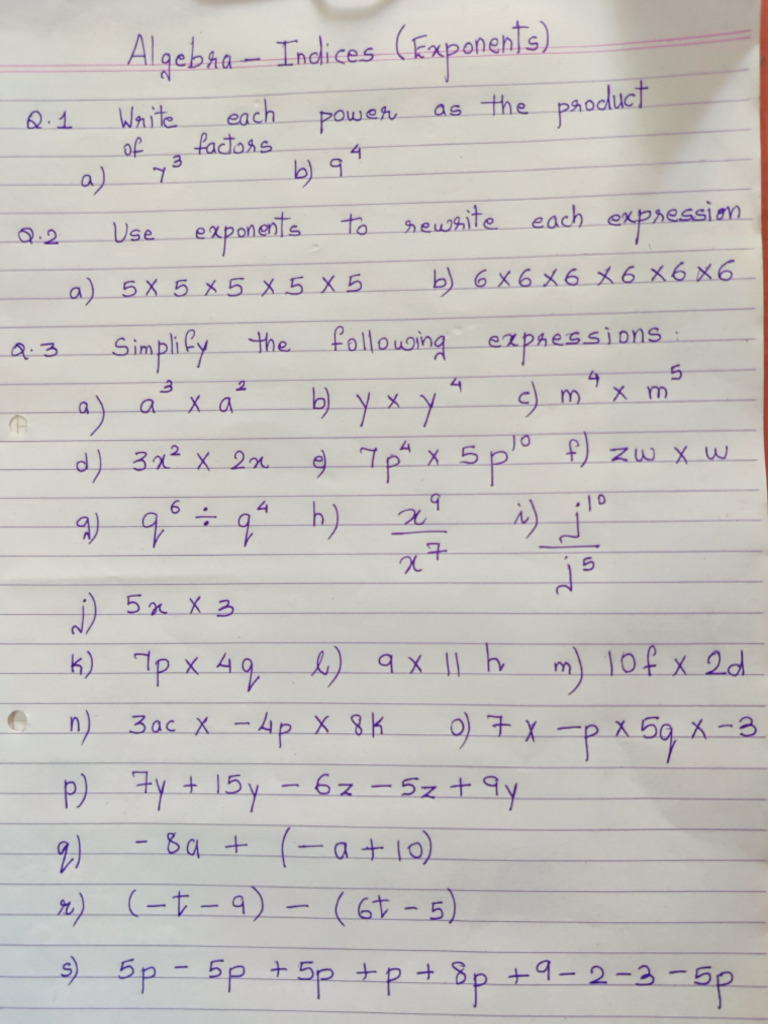 Algebra - Indices (Exponents)
Q.1 Write each power as the product
of factors
a) 7³ b) 9⁴
Q.2 Use exponents to rewrite each expression
a) 5 × 5 × 5 × 5 × 5 b) 6 × 6 × 6 × 6 × 6 × 6
Q.3 Simplify the following expressions:
a) a³ × a² b) y × y⁴ c) m⁴ × m⁵
d) 3x² × 2x e) 7p⁴ × 5p¹⁰ f) zw × w
g) q⁶ ÷ q⁴ h) x⁹/x⁷ i) j¹⁰/j⁵
j) 5x × 3
k) 7p × 4q l) 9 × 11 h m) 10f × 2d
n) 3ac × -4p × 8k o) 7 × -p × 5q × -3
p) 7y + 15y - 6z - 5z + 9y
q) - 8a + (-a + 10)
r) (-t - 9) - (6t - 5)
s) 5p - 5p + 5p + p + 8p + 9 - 2 - 3 - 5p